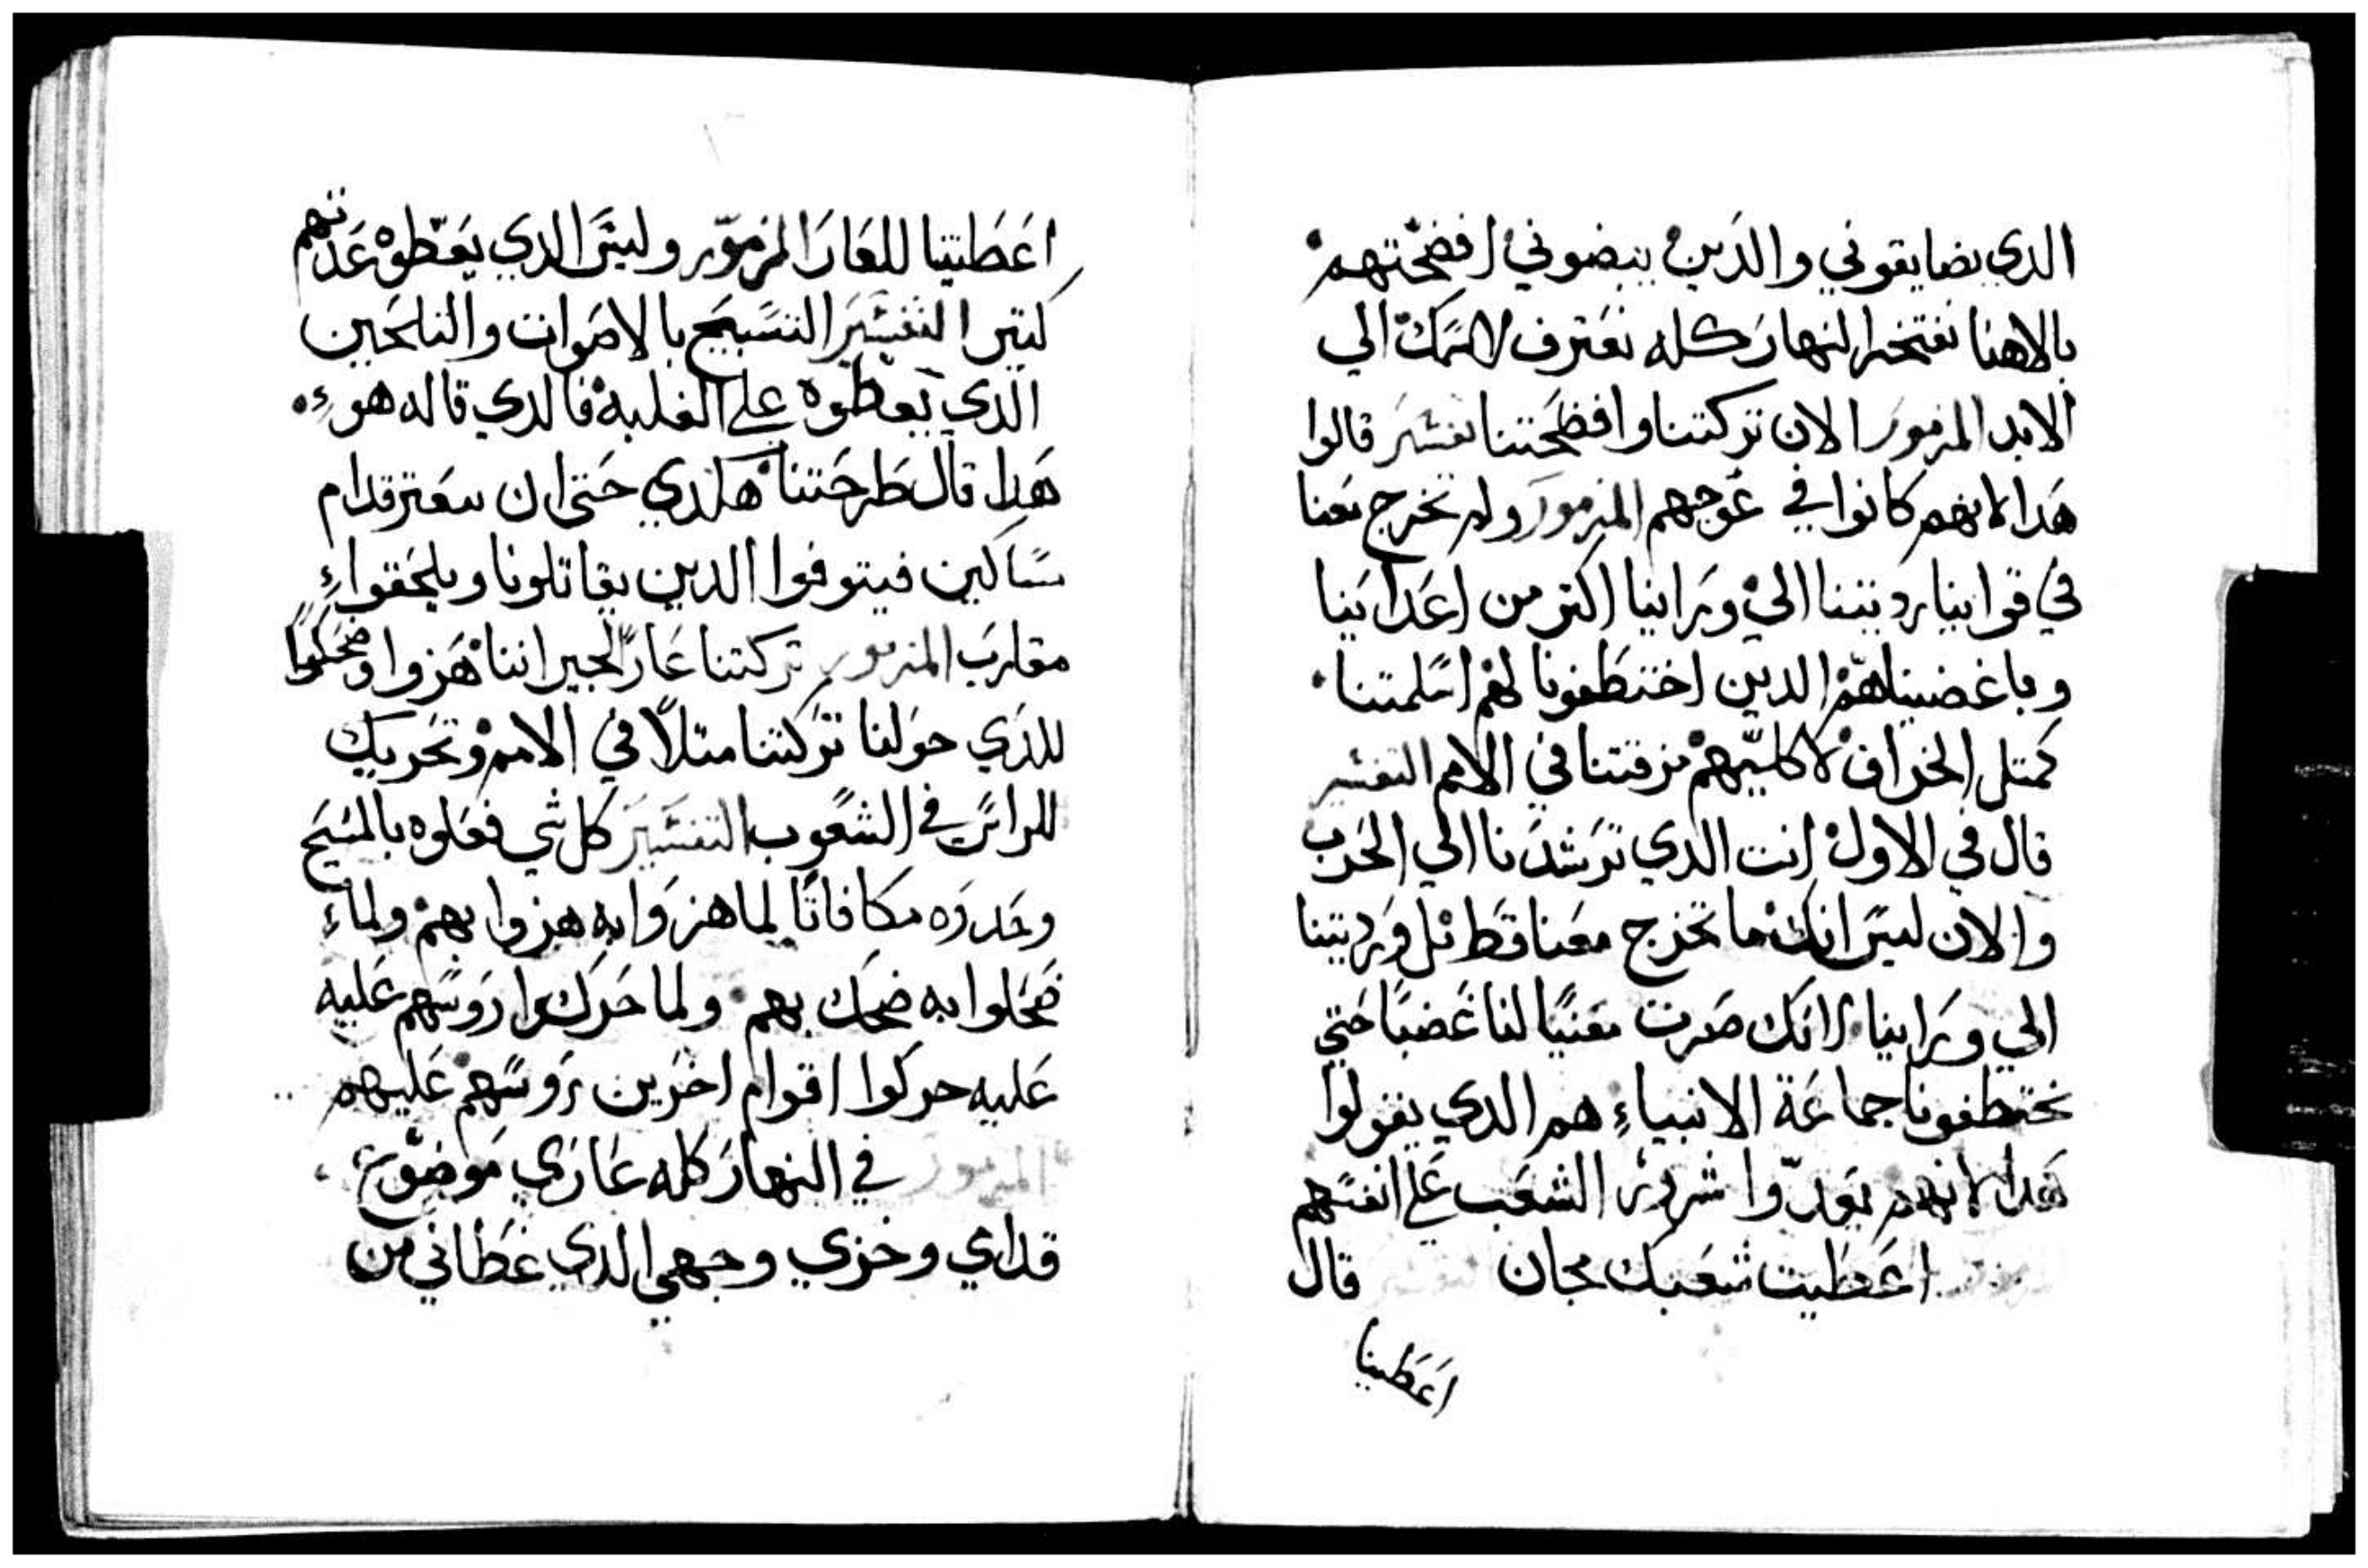 الدي يضايقوني والدين يبغضوني افضحتهم
بالاهنا نفتخر النهار كله نعترف لاسمك الي
الابد المزمور الان تركتنا وافضحتنا تفسير قالوا
هدا لانهم كانوا في عوجهم المزمور ولم تخرج معنا
في قواتنا رديتنا الي ورانيا اكتر من اعداينا
وباغضيناهم الدين اختطفونا لهم اسلمتنا
كمتل الخراف لاكليهم مزقتنا في الامم التفسير
قال في الاول انت الدي ترشدنا الي الحرب
والان ليس انك ما تخرج معنا قط بل ورديتنا
الي ورانيا انك صرت معنيا لنا غضبا حتي
نختطفونا جماعة الانبياء هم الدي يقولوا
هدا لانهم يعدوا شرور الشعب علي انفسهم
اعطيت شعبك مجان قال
اعطيتنا
اعطيتنا للعار المزمور وليس الدي يعطوه عدتهم
كتير التفسير التسبيح بالاصوات والتلحين
الدي يعطوه علي الغلبة فالدي قاله هو
هدا قال طرحتنا هكدي حتي ان قدام
ساكين فيتوفوا الدين يقاتلونا ويلحقواء
مقارب المزمور تركتنا عارًا لجيراننا هزوا وضحكا
للدي حولنا تركتنا متلًا في الامم وتحريك
للراس في الشعوب التفسير كل شي فعلوه بالمسيح
وحدده مكافاتًا لما هزوا به هزوا بهم ولماء
ضحلوا به ضحك بهم ولما حركوا روسهم عليه
عليه حركوا اقوام اخرين روسهم عليهم
المزمور في النهار كله عاري موضوع
قدامي وخزي وجهي الدي غطاني من